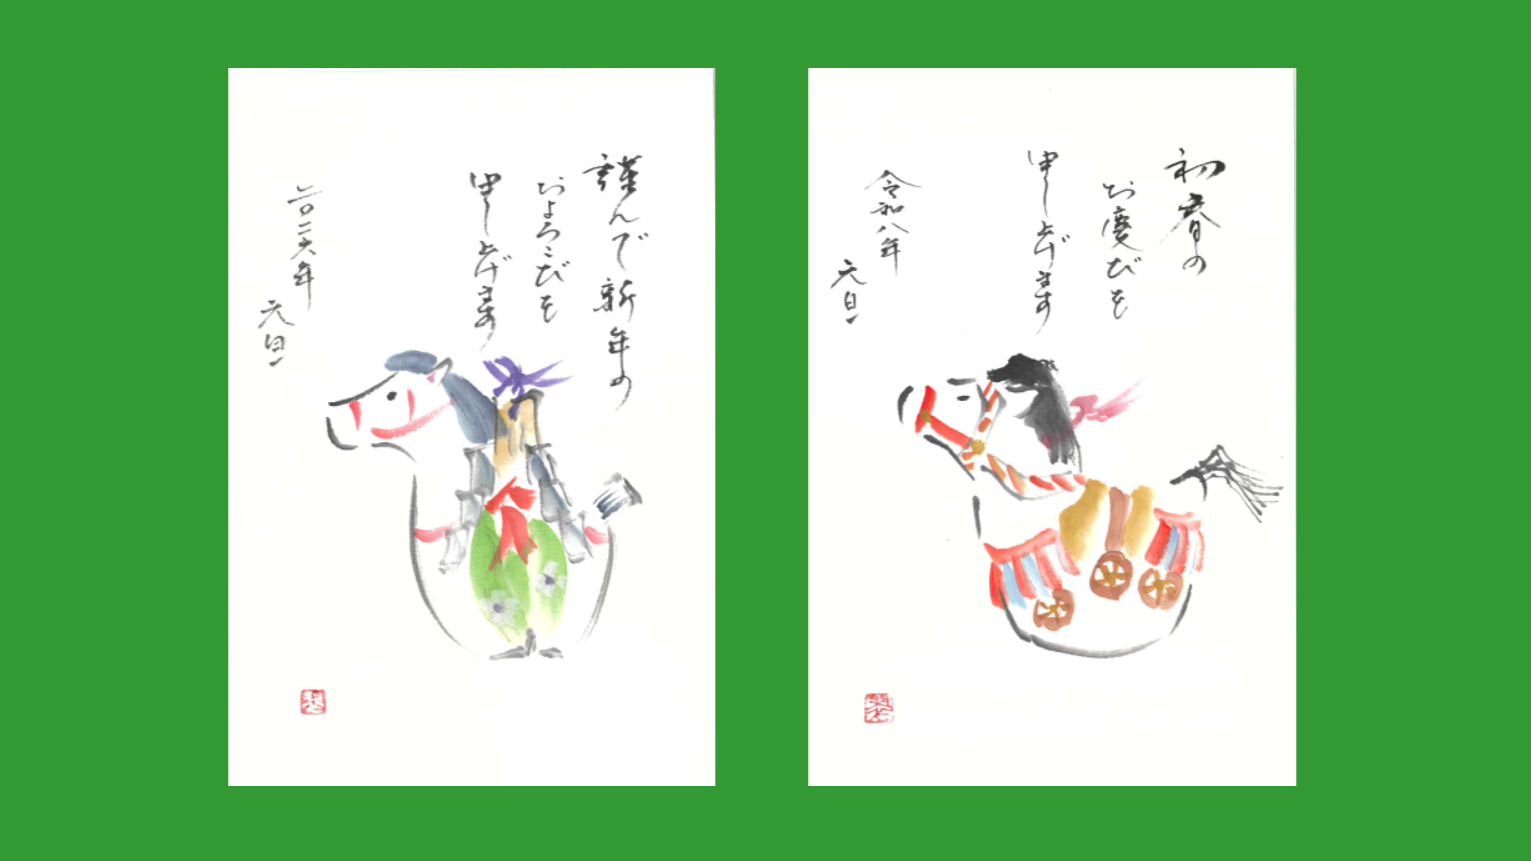 謹んで新年の
およろこびを
申し上げます
二〇二六年
元旦
初春の
お慶びを
申し上げます
令和八年
元旦